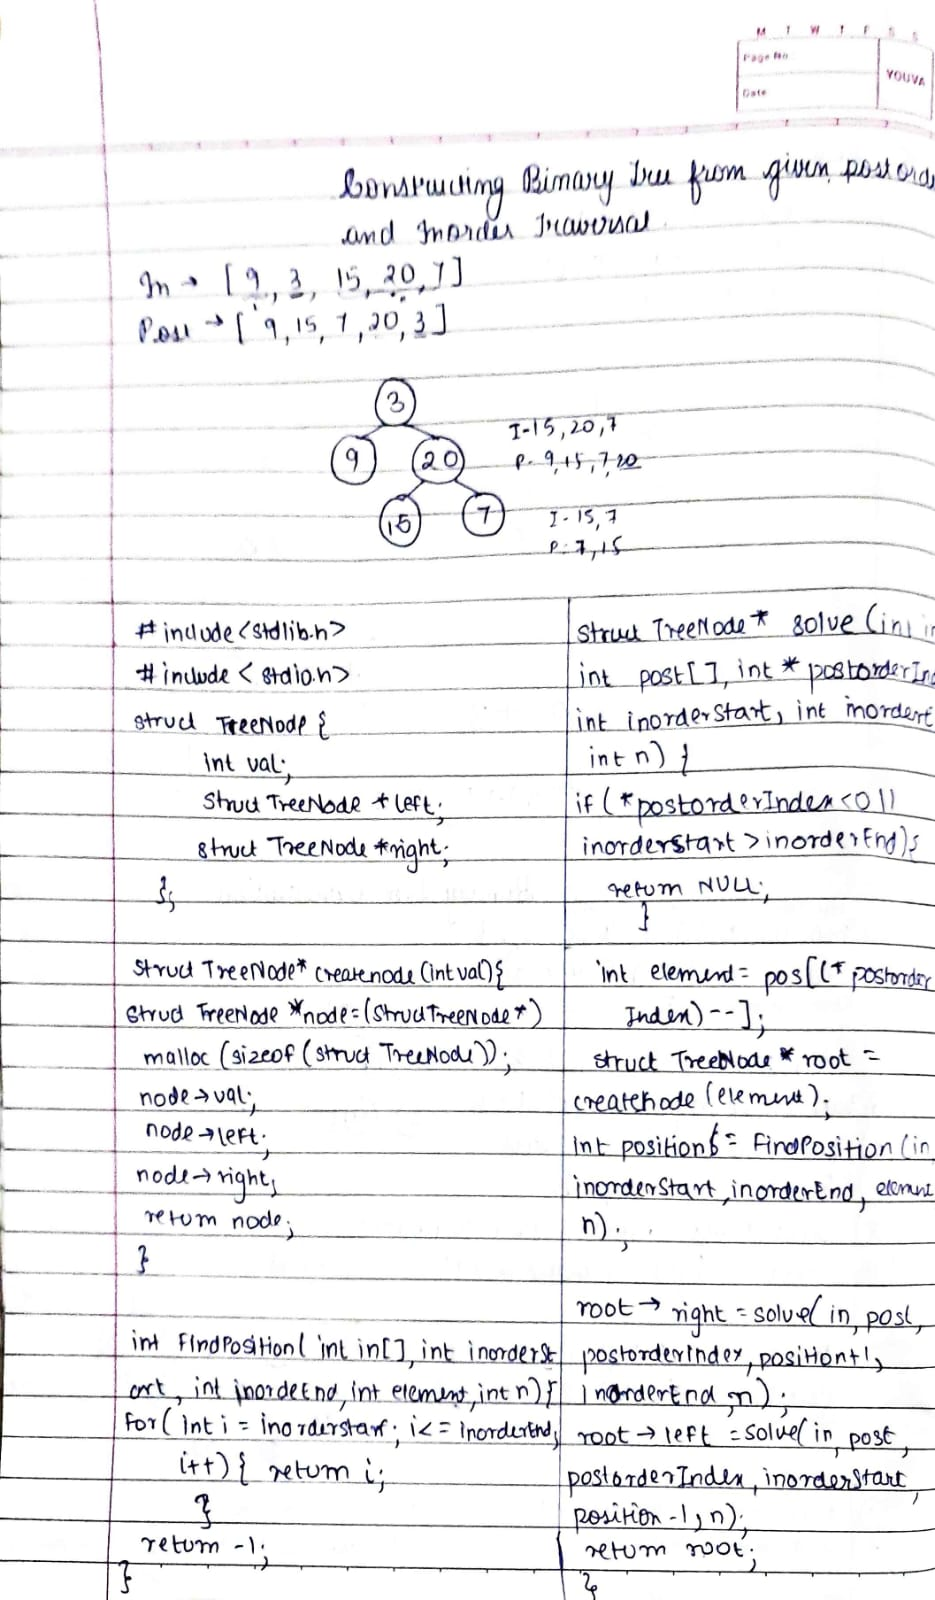 M T W T F S S
Page No
YOUVA
Date
Constructing Binary Tree from given postord
and Inorder Traversal
In → [9, 3, 15, 20, 7]
Post → [9, 15, 7, 20, 3]
3
I-15, 20, 7
9 20
P- 9, 15, 7, 20
15 7
I- 15, 7
P- 7, 15
#include <stdlib.h>
#include <stdio.h>
struct TreeNode {
int val;
struct TreeNode *left;
struct TreeNode *right;
};
struct TreeNode* createnode (int val) {
struct TreeNode *node = (struct TreeNode *)
malloc (sizeof (struct TreeNode));
node → val;
node → left;
node → right;
return node;
}
int findPosition( int in[], int inorderst
art, int inordeEnd, int element, int n) {
for( int i = inorderstart; i <= inorderEnd;
i++) { return i;
}
return -1;
}
struct TreeNode * solve (int i
int post[], int * postorderInd
int inorderStart, int inorderE
int n) {
if (*postorderIndex < 0 ||
inorderstart > inorderEnd) {
return NULL;
}
int element = pos[(* postorder
Index) --];
struct TreeNode * root =
createnode (element);
int position = findPosition (in
inorderStart, inorderEnd, element
n);
root → right = solve( in, post,
postorderIndex, position+1,
inorderEnd, n);
root → left = solve( in, post,
postorderIndex, inorderStart,
position -1, n);
return root;
}